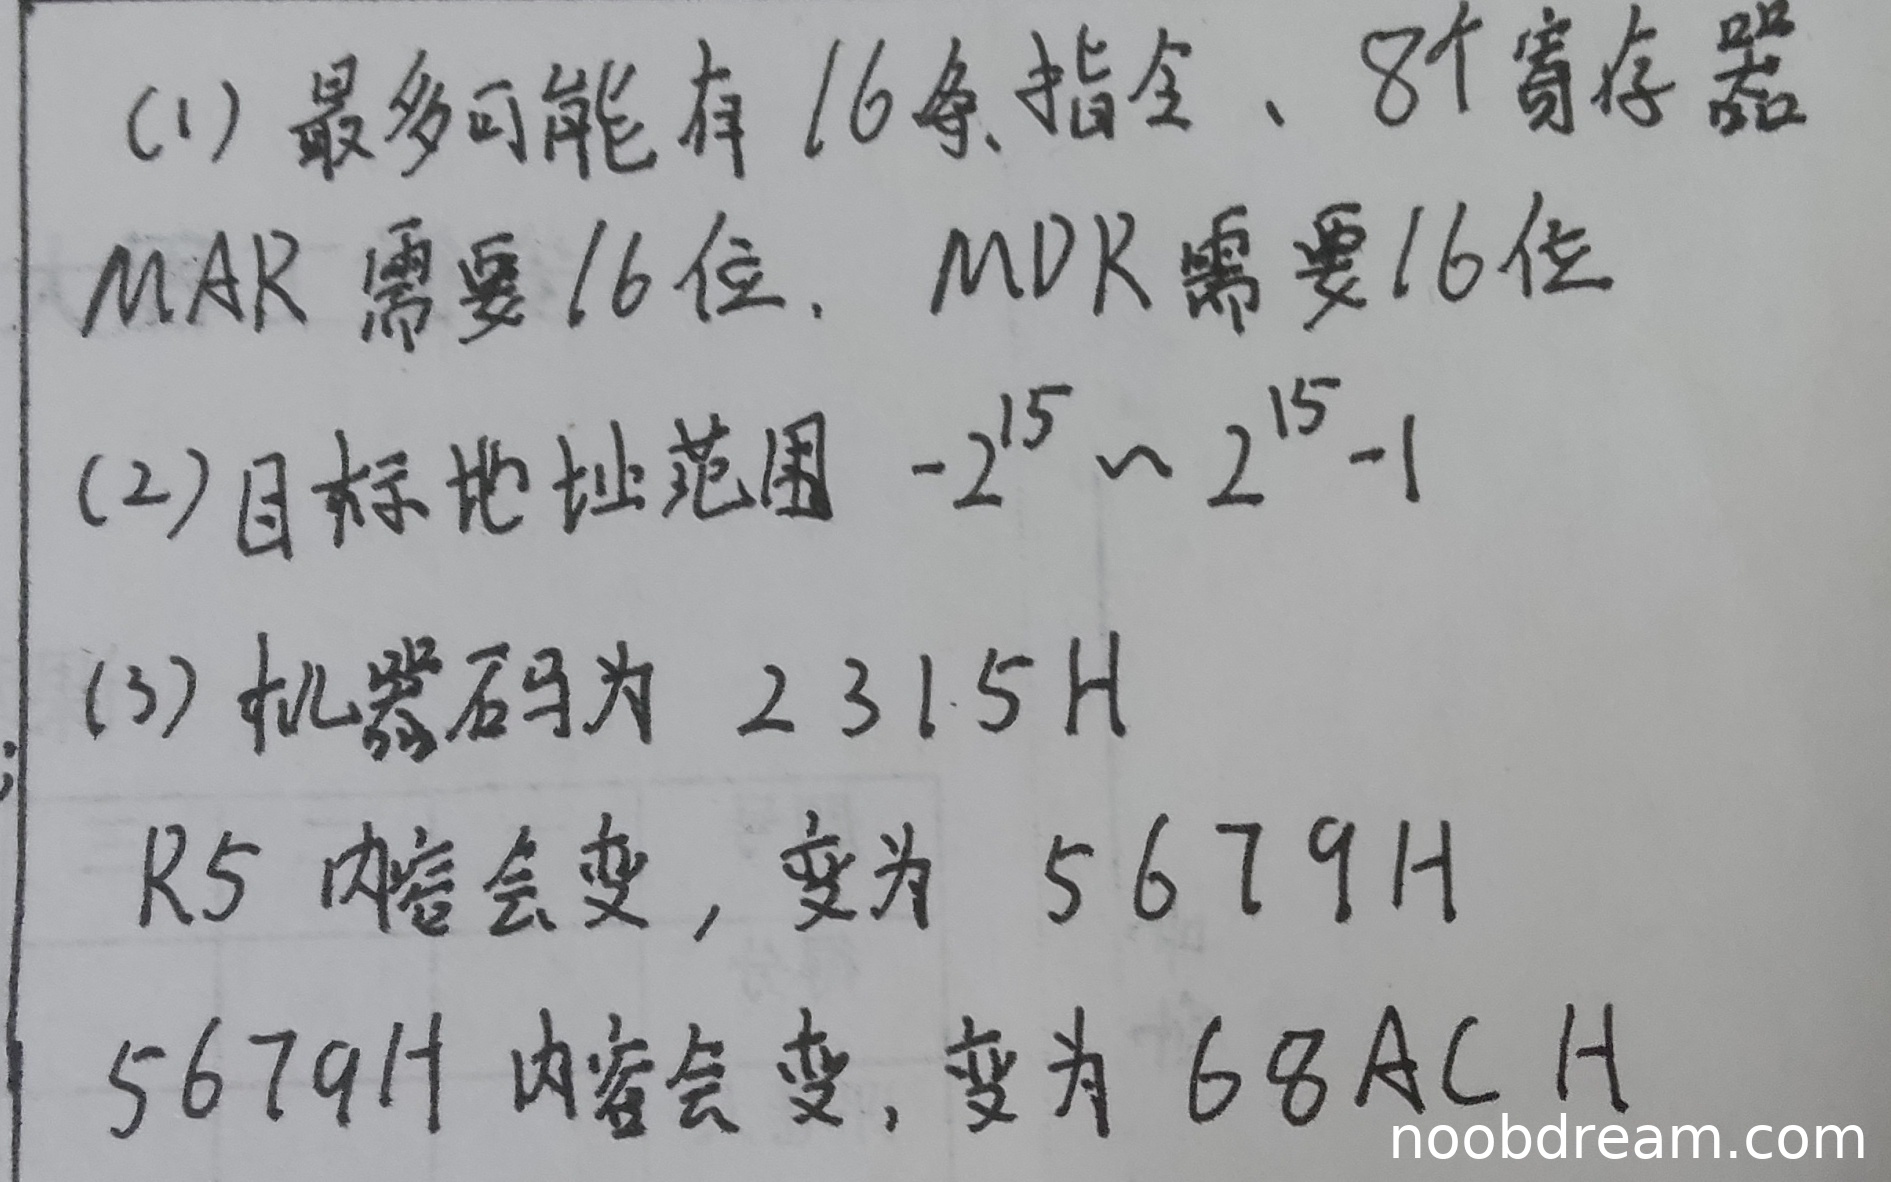 (1) 最多可能有 16条指令、8个寄存器
MAR 需要16位. MDR需要16位
(2) 目标地址范围 -2^15 ~ 2^15 -1
(3) 机器码为 2315H
R5 内容会变, 变为 5679H
5679H 内容会变, 变为 68AC H
noobdream.com